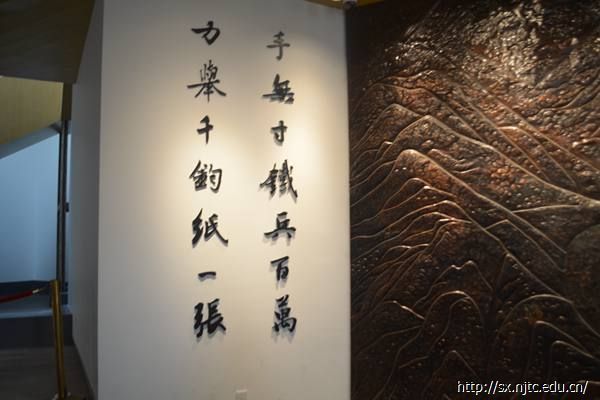 手無寸鐵兵百萬
力舉千鈞紙一張
http://sx.njtc.edu.cn/